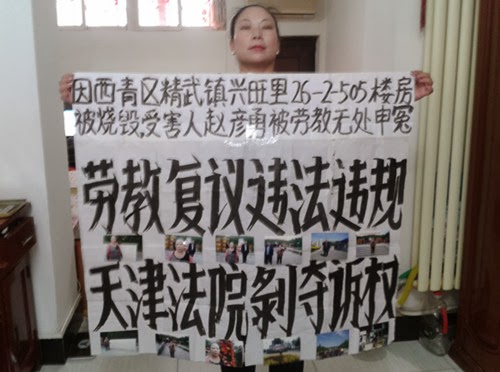 因西青区精武镇兴旺里26-2-505楼房
被烧毁,受害人赵彦勇被劳教无处申冤
劳教复议违法违规
天津法院剝夺诉权